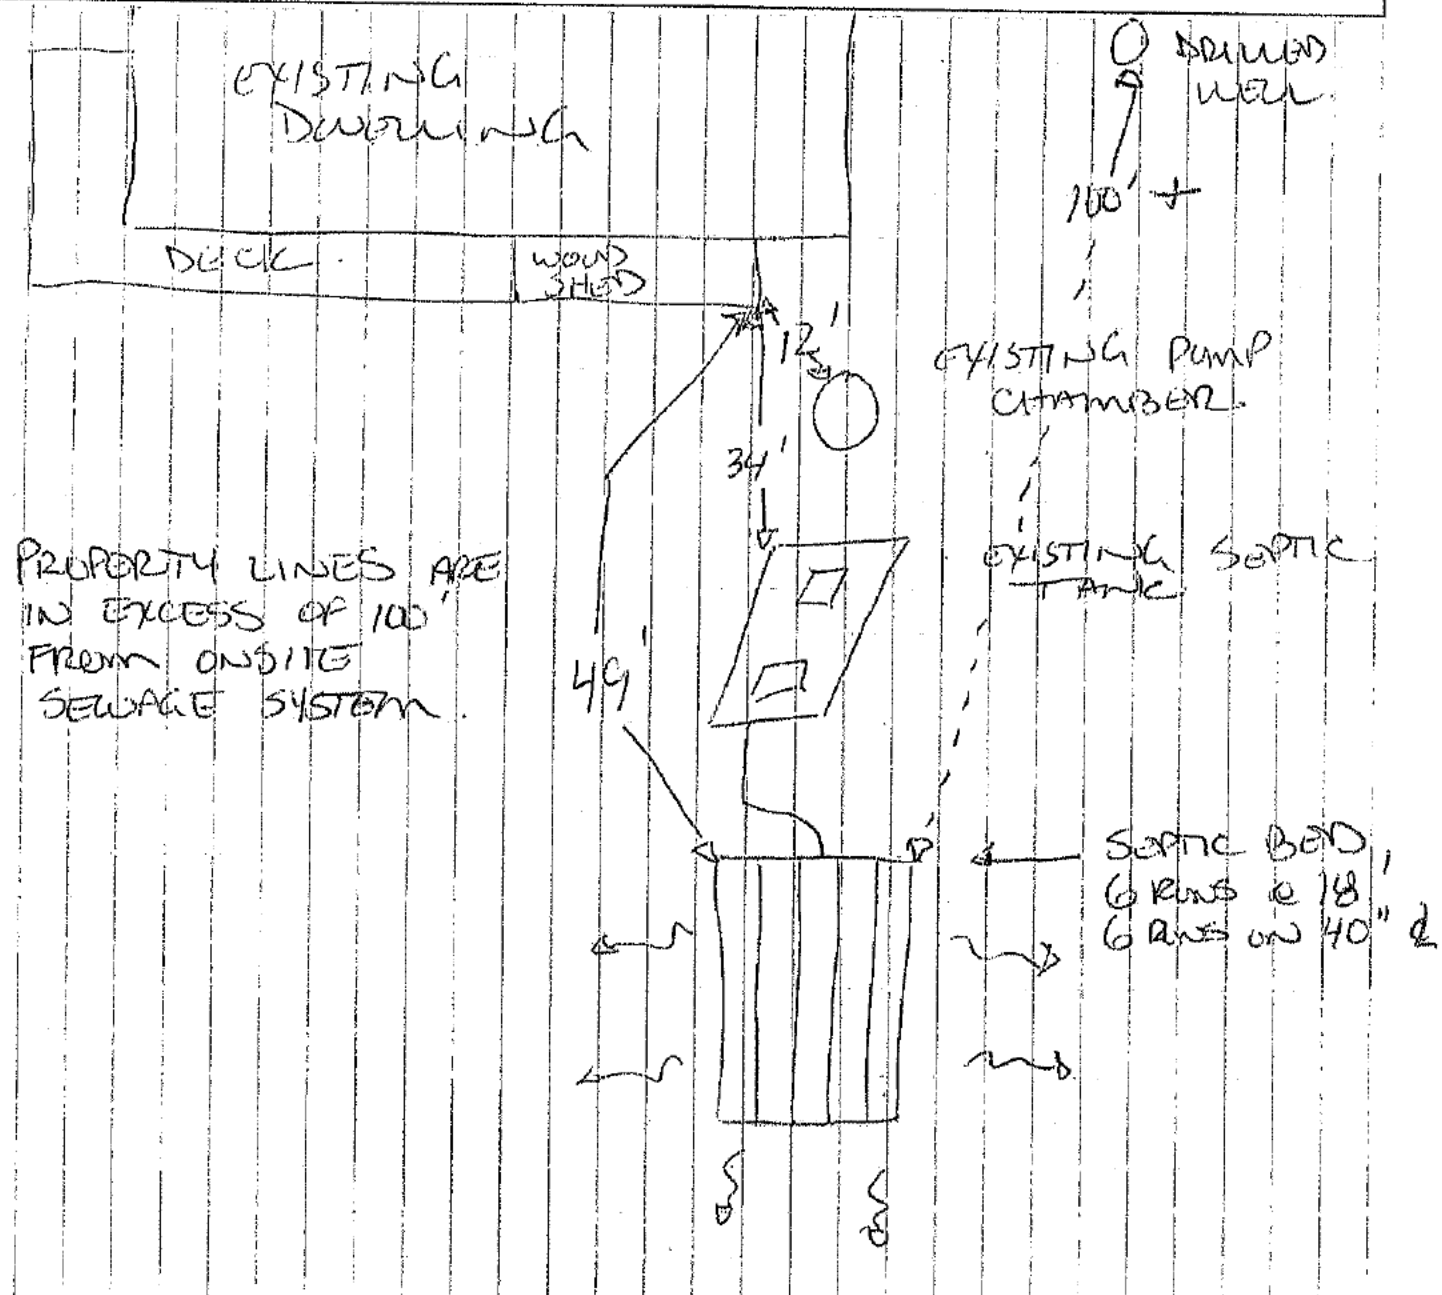 EXISTING
DWELLING
DRILLED
WELL
100' +
DECK.
WOOD
SHED
12'
EXISTING PUMP
CHAMBER.
34'
EXISTING SEPTIC
TANK.
PROPERTY LINES ARE
IN EXCESS OF 100'
FROM ONSITE
SEWAGE SYSTEM.
49'
SEPTIC BED,
6 RUNS @ 18'
6 RUNS ON 40" ℄